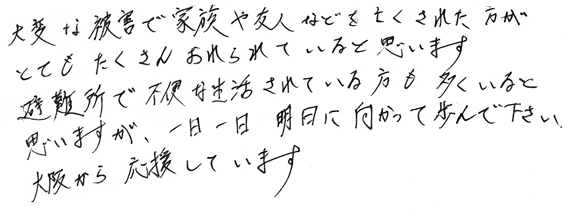 大変な被害で家族や友人などを亡くされた方が
とてもたくさんおれられていると思います
避難所で不便な生活されている方も多くいると
思いますが、一日一日 明日に向かって歩んで下さい
大阪から応援しています